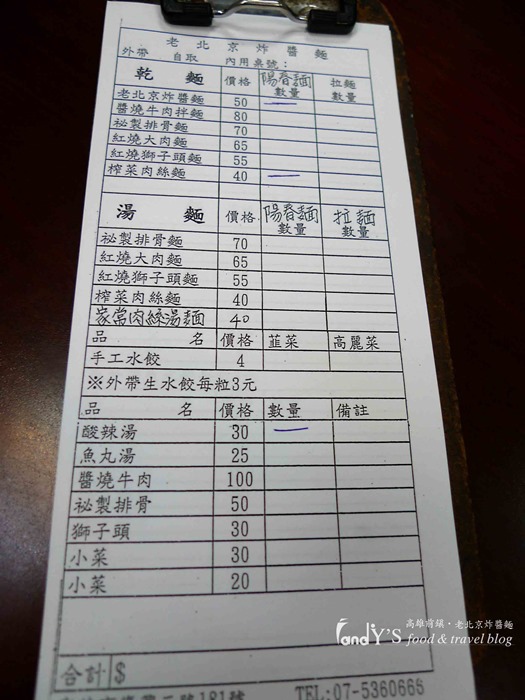 老北京炸醬麵
外帶 自取 內用桌號：
乾 麵 價格 陽春麵 數量 拉麵 數量
老北京炸醬麵 50
醬燒牛肉拌麵 80
祕製排骨麵 70
紅燒大肉麵 65
紅燒獅子頭麵 55
榨菜肉絲麵 40
湯 麵 價格 陽春麵 數量 拉麵 數量
祕製排骨麵 70
紅燒大肉麵 65
紅燒獅子頭麵 55
榨菜肉絲麵 40
家常肉絲湯麵 40
品 名 價格 韮菜 高麗菜
手工水餃 4
※外帶生水餃每粒3元
品 名 價格 數量 備註
酸辣湯 30
魚丸湯 25
醬燒牛肉 100
祕製排骨 50
獅子頭 30
小菜 30
小菜 20
合計 $
181號 TEL:07-5360666
高雄前鎮·老北京炸醬麵
FandY'S food & travel blog